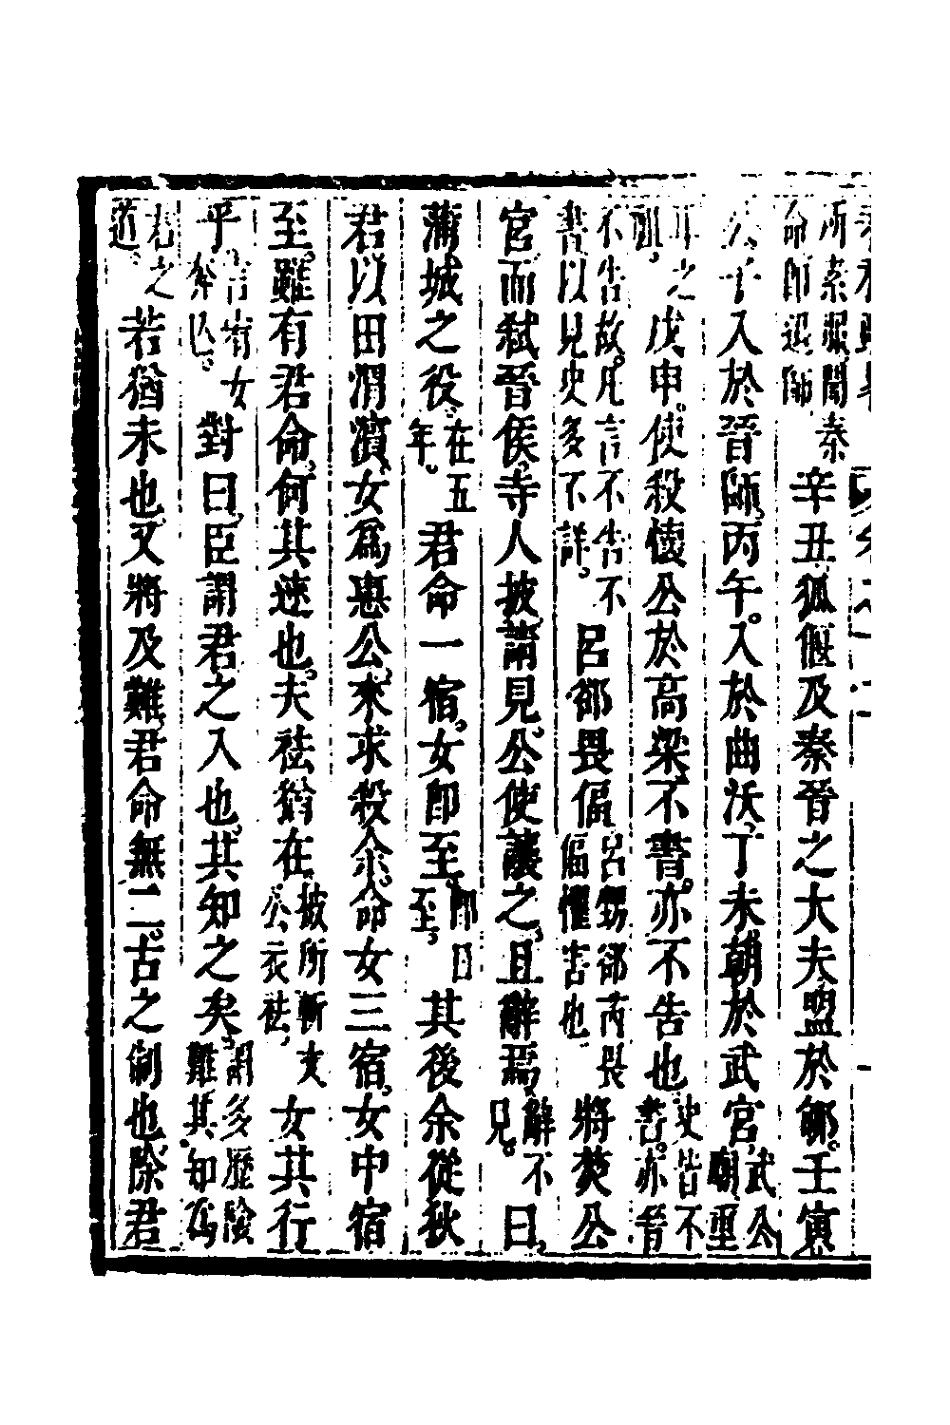 所素服聞秦命卽退師辛丑狐偃及秦晉之大夫盟於郇。壬寅
公子入於晉師。丙午。入於曲沃。丁未朝於武宮。武公朝重
耳之祖。戊申。使殺懷公於高梁不書。亦不告也史皆不書。亦晉
不告故。凡言不告不書以見史多不詳。呂郤畏偪呂甥郤芮畏偪懼害也將焚公
宮而弒晉侯。寺人披請見公使讓之。且辭焉。辭不見。曰。
蒲城之役。在五年。君命一宿。女卽至。卽日至。其後余從狄
君以田渭濱。女爲惠公。來求殺余。命女三宿。女中宿
至。雖有君命。何其速也。夫袪猶在。披所斬文公衣袪。女其行
乎。言宥女奔亾。對曰。臣謂君之入也。其知之矣。謂多歷險難。其知爲
君之道。若猶未也又將及難君命無二。古之制也。除君